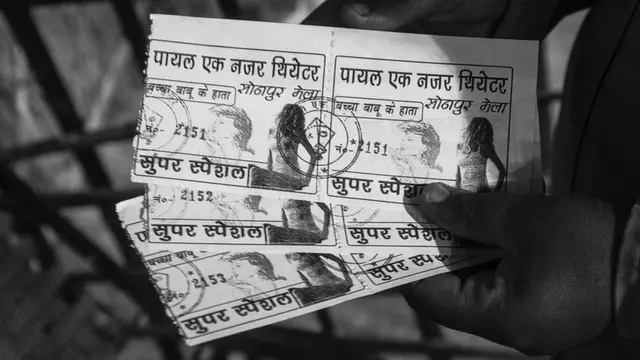 पायल एक नजर थियेटर
बच्चा बाबू के हाता सोनपुर मेला
नं०- 2151
सुपर स्पेशल
पायल एक नजर थियेटर
बच्चा बाबू के हाता सोनपुर मेला
नं०- 2151
सुपर स्पे
नं०- 2152
सुपर स्पेशल
सुपर स्पेशल
नं०- 2153
सुपर स्पेशल
सुपर स्प